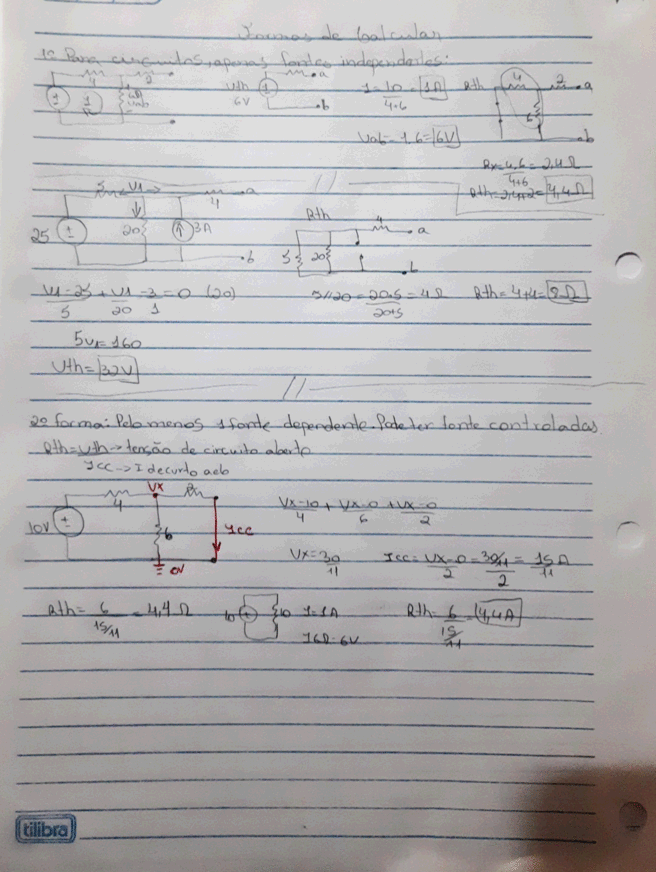 Formas de Calcular
1º Para circuitos, apenas fontes independentes:
4 2 a
Vth 6V
a
b
I = 10/4+6 = 1A
Rth 4 2 a
6
b
Vab = 1.6 = 6V
Rx = 4.6/4+6 = 2,4 Ω
Rth = 2,4+2 = 4,4 Ω
V1 4 a
25 20 3A b
Rth 4 a
5 20 b
V1-25/5 + V1/20 - 3/1 = 0 (20)
5//20 = 20.5/20+5 = 4Ω
Rth = 4+4 = 8Ω
5V1 = 160
Vth = 32V
2º forma: Pelo menos 1 fonte dependente. Pode ter fonte controladas
Rth = Vth → tensão de circuito aberto
Icc → I de curto a e b
10V 4 Vx 6 Icc 0V
Vx-10/4 + Vx-0/6 + Vx-0/2
Vx = 30/11
Icc = Vx-0/2 = 30/11/2 = 15/11 A
Rth = 6/15/11 = 4,4 Ω
10 10
I = 1A
I6Ω = 6V
Rth = 6/15/11 = 4,4A
tilibra